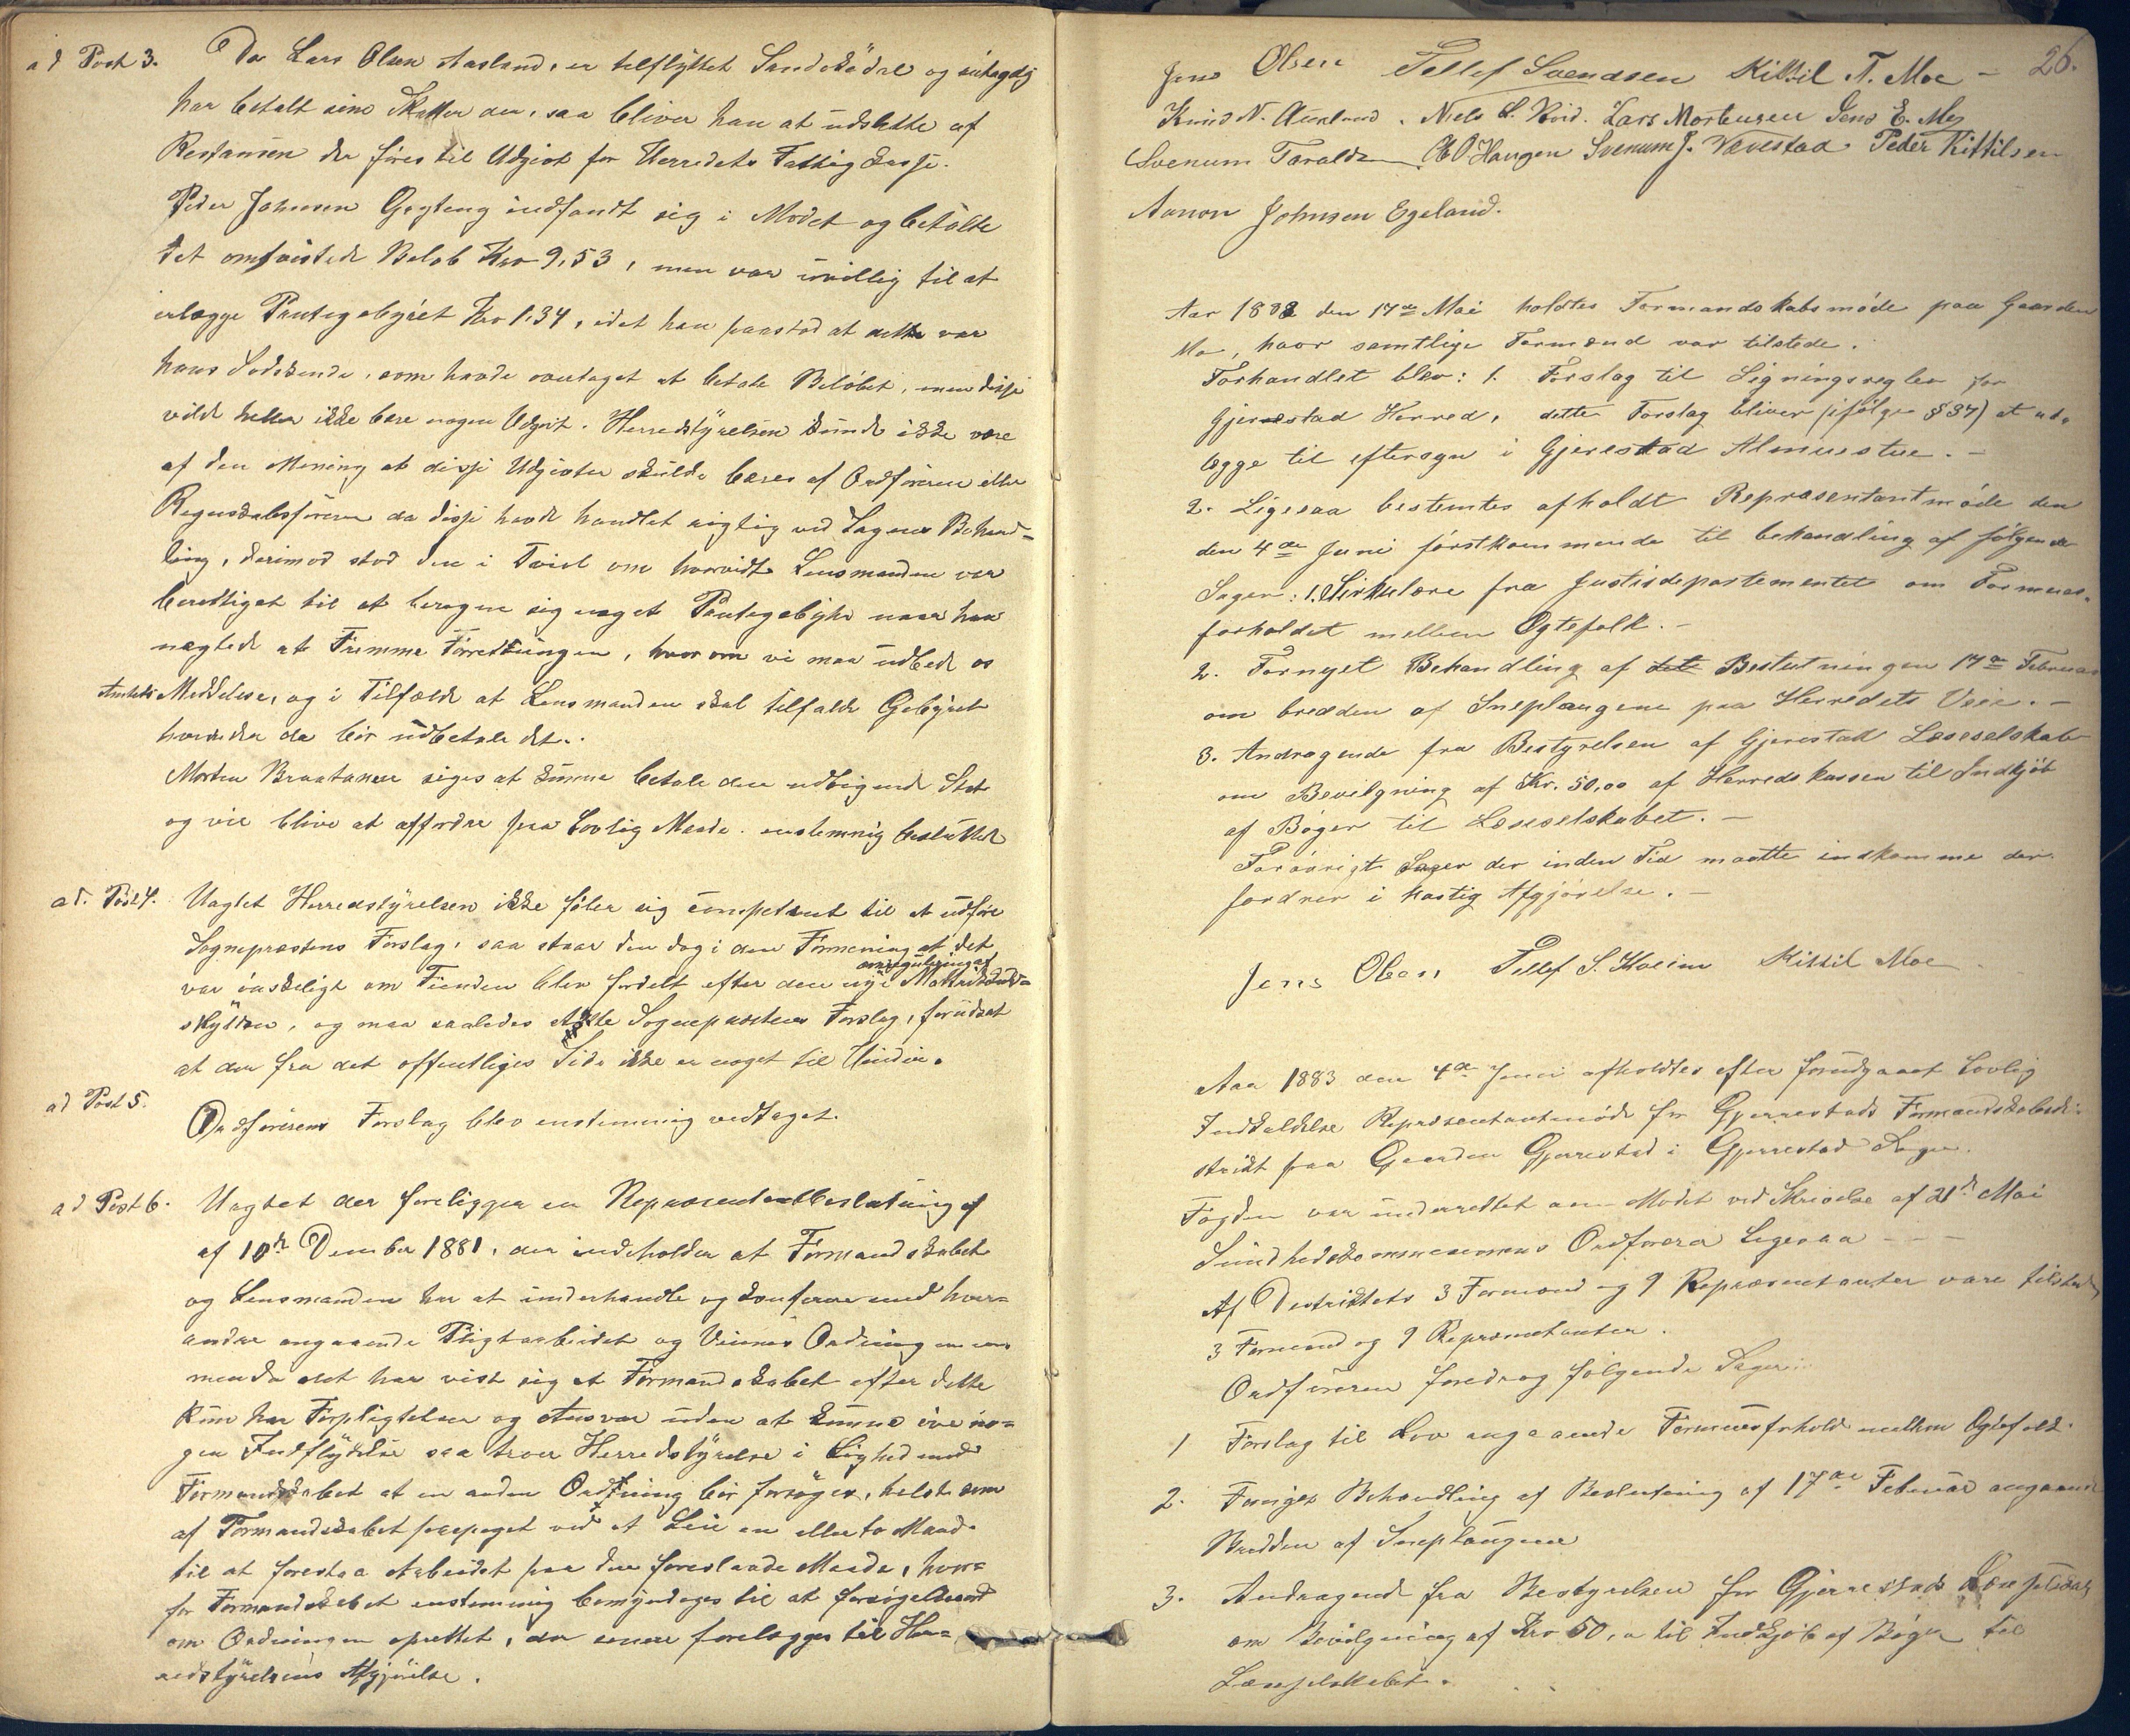 ad Post 3. Da Lars Olsen Aasland, er tilflyttet Sandøkedal og
har betalt sine Skatter der, saa bliver han at udslette af
Restancen der føres til Udgivt for Herredets Fattigkasse.
Peder Johnsen Gryting indfandt sig i Mødet og betalte
det omtvistede Beløb Kro 9,53, men var uvillig til at
erlægge Pantegebyret Kro 1,34, idet han paastod at dette var
hans Sødskende, som havde overtaget at betale Beløbet, men disse
vilde heller ikke bære nogen Udgivt. Herredstyrelsen kunde ikke være
af den Mening at disse Udgivter skulde bæres af Ordføreren eller
Regnskabsføreren da disse havde handlet rigtig ved Sagens Behand-
ling, derimod stod den i Tvivl om hvorvidt Lensmanden var
berettiget til at beregne sig noget Pantegebyhr naar han
nægtede at Fremme Forretningen, hvorom vi maa udbede os
Amtets Meddelse, og i Tilfælde at Lensmanden skal tilfalde Gebyret
da bør udbetale det.
Morten Braatanen siges at kunne betale den udlignede Skat
og vil blive at affordre paa Lovlig Maade. enstemmig besluttet
ad. Post 4. Uagtet Herredstyrelsen ikke føler sig competent til at udføre
Sognepræstens Forslag, saa staar den dog i den Formening at det
var ønskeligt om Tienden blev fordelt efter den nye omregulering af Matrikkul-
skylden, og maa saaledes støtte Sognepræstens Forslag, forudsat
at der fra det offentliges Side ikke er noget til Hinder.
ad Post 5.
Ordførerens Forslag blev enstemmig vedtaget.
ad Post 6. Uagtet der foreligger en Repræsentantbeslutning af
af 10de December 1881, der indeholder at Formandskabet
og Lensmanden har at underhandle og konferere med hver-
andre angaaende Pligtarbeidet og Veienes Ordning
men da det har vist sig at Formandskabet efter dette
kun har Forpligtelser og Ansvar uden at kunne øve no-
gen Indflydelse saa troer Herredstyrelse i Lighed med
Formandskabet at en anden Ordning bør forsøges, helst som
af Formandskabet paapeget ved at Leie en eller to Mænd
til at forestaa Arbeidet paa den foreslaaede Maade, hvor-
for Formandskabet enstemmig bemyndiges til at forsøge
om Ordningen oprettet, der senere forelægges til Her-
redstyrelsens Afgjørelse.
26.
Jens Olsen Tellef Svendsen Kittil T. Moe
Knud N. Aurlund. Niels L. Kvid. Lars Mortensen Jens E. Moe
Svenum Taralds O. Haugen Svenum J. Vævestad Peder Kittilsen
Aanon Johnsen Egeland.
Aar 1883 den 17de Mai holdtes Formandskabsmøde paa Gaarden
Mo, hvor samtlige Formænd var tilstede.
Forhandlet blev: 1. Forslag til Ligningsregler for
Gjerrestad Herred, dette Forslag bliver (ifølge § 37) at ud-
lægge til eftersyn i Gjerestad Almuestue.
2. Ligesaa bestemtes afholdt Repræsentantmøde den
den 4de Juni førstkommende til behandling af følgende
Sager: 1. Sirkulære fra Justisdepartementet om Formues-
forholdet mellem Ægtefolk.
2. Fornyet Behandling af det Beslutningen 17de Februar
om bredden af Sneplaugene paa Herredets Veie.
3. Andragende fra Bestyrelsen af Gjerestad Læseselskab
om Bevilgning af Kr. 50,00 af Herredskassen til Indkjøb
af Bøger til Læseselskabet.
Forøvrigt Sager der inden Tid maatte indkomme der
fordrer i hastig Afgjørelse.
Jens Olsen Tellef S. Kittil Moe
Aar 1883 den 4de Juni afholdtes efter forudgaaet Lovlig
Indkaldelse Repræsentantmøde for Gjerrestads Formandskabsdi-
strikt paa Gaarden Gjerrestad i Gjerrestad Sogn.
Fogden var underrettet om Mødet ved Skrivelse af 21de Mai
Sundhedskommissionens Ordfører Ligesaa
Af Distriktets 3 Formænd og 9 Repræsentanter vare tilstede
3 Formænd og 9 Repræsentanter.
Ordføreren foredrog følgende Sager:
1 Forslag til Lov angaaende Formuesforhold mellem Ægtefolk.
2. Fornyet Behandling af Beslutning af 17de Februar angaaende
Bredden af Sneplaugene
3. Andragende fra Bestyrelsen for Gjerrestads Læseselskab
om Bevilgning af Kro 50, til Indkjøb af Bøger til
Læseselskabet.